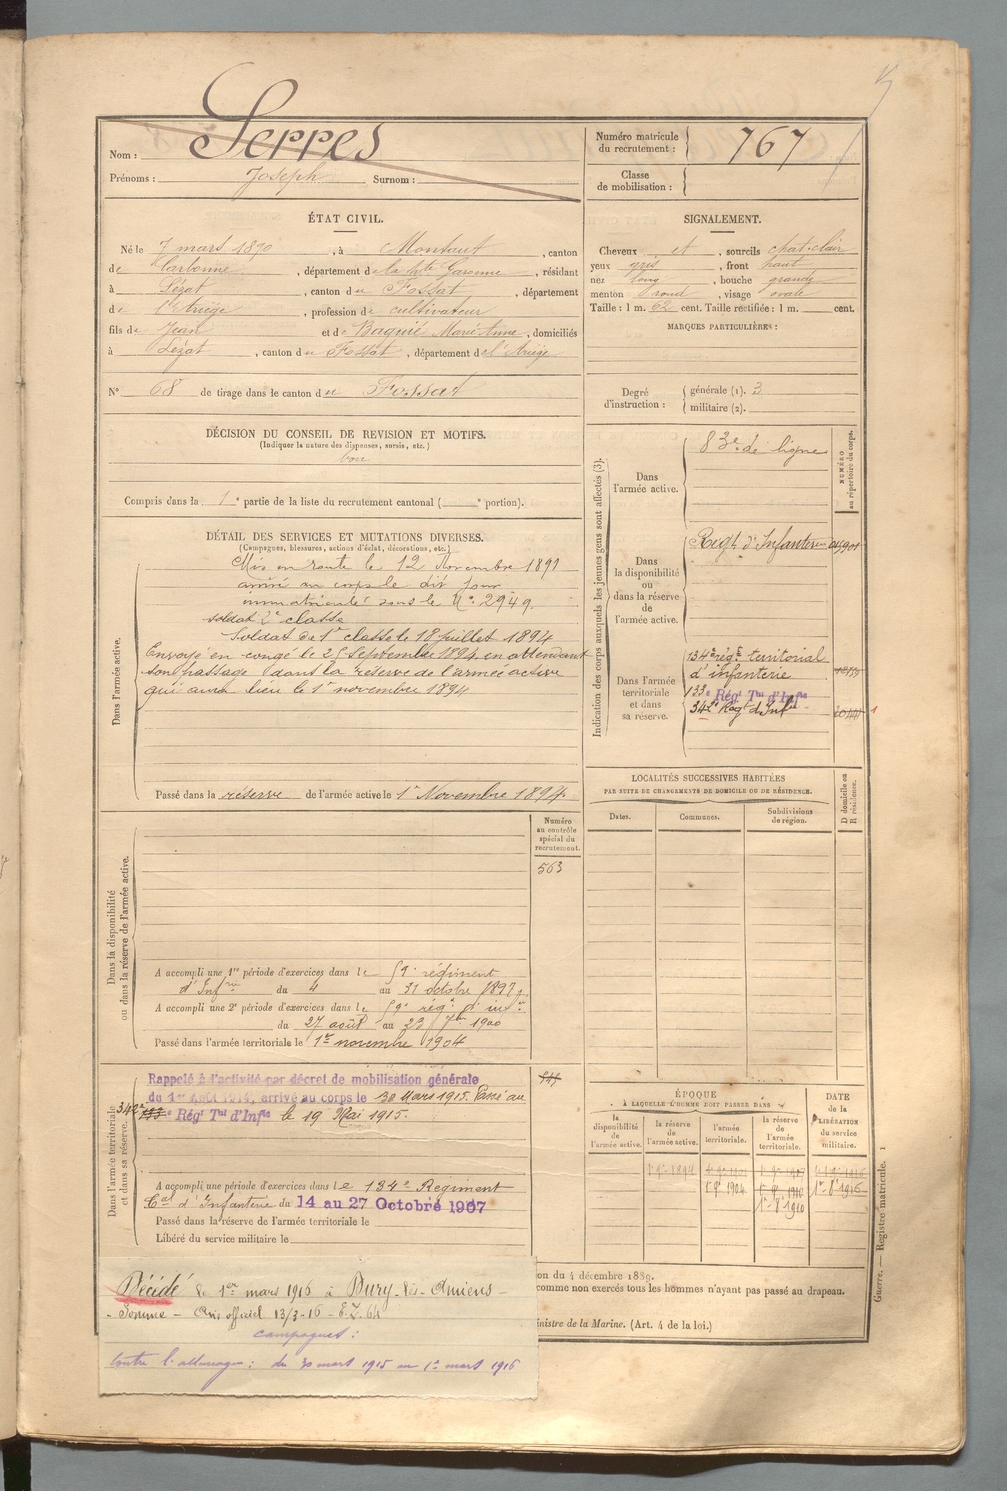 Nom : Serres
Prénoms : Joseph Surnom :
Numéro matricule du recrutement : 767
Classe de mobilisation :
ÉTAT CIVIL.
Né le 7 mars 1870, à Montaut, canton
de Carbonne, département de la hte Garonne, résidant
à Lézat, canton du Fossat, département
de l'Ariège, profession de cultivateur
fils de Jean et de Baquié Marie Anne, domiciliés
à Lézat, canton du Fossat, département de l'Ariège
N° 68 de tirage dans le canton du Fossat
SIGNALEMENT.
Cheveux et, sourcils chat. clair
yeux gris, front haut
nez long, bouche grande
menton rond, visage ovale
Taille : 1 m. 62 cent. Taille rectifiée : 1 m. cent.
MARQUES PARTICULIÈRES :
Degré d'instruction : générale (1). 3
militaire (2).
DÉCISION DU CONSEIL DE REVISION ET MOTIFS.
(Indiquer la nature des dispenses, sursis, etc.)
bon
Compris dans la 1e partie de la liste du recrutement cantonal ( e portion).
DÉTAIL DES SERVICES ET MUTATIONS DIVERSES.
(Campagnes, blessures, actions d'éclat, décorations, etc.)
Dans l'armée active.
Mis en route le 12 Novembre 1891
arrivé au corps le dit jour
immatriculé sous le N° 2949.
soldat 2e classe
Soldat de 1e classe le 18 juillet 1894
Envoyé en congé le 25 Septembre 1894 en attendant
son passage dans la réserve de l'armée active
qui aura lieu le 1er novembre 1894
Passé dans la réserve de l'armée active le 1er Novembre 1894
Indication des corps auxquels les jeunes gens sont affectés (3).
NUMÉRO au répertoire du corps.
Dans l'armée active.
83e de ligne
Dans la disponibilité ou dans la réserve de l'armée active.
Regt. d'Infanterie
Dans l'armée territoriale et dans sa réserve.
134e régt territorial
d'infanterie
133e Régt Tal d'Infie
342e Regt d'Infie
LOCALITÉS SUCCESSIVES HABITÉES
PAR SUITE DE CHANGEMENTS DE DOMICILE OU DE RÉSIDENCE.
Dates. Communes. Subdivisions de région. D domicile ou R résidence.
Dans la disponibilité ou dans la réserve de l'armée active.
Numéro au contrôle spécial du recrutement.
563
A accompli une 1re période d'exercices dans le 59e régiment
d'Infrie du 4 au 31 octobre 1897
A accompli une 2e période d'exercices dans le 59e rég. d'inf.
du 27 août au 23 7bre 1900
Passé dans l'armée territoriale le 1er novembre 1904
Dans l'armée territoriale et dans sa réserve.
Rappelé à l'activité par décret de mobilisation générale
du 1er Août 1914, arrivé au corps le 30 Mars 1915. Passé au
342e 133e Régt Tal d'Infie le 19 Mai 1915.
A accompli une période d'exercices dans le 134e Régiment
Tal d'Infanterie du 14 au 27 Octobre 1907
Passé dans la réserve de l'armée territoriale le
Libéré du service militaire le
ÉPOQUE
A LAQUELLE L'HOMME DOIT PASSER DANS
la disponibilité de l'armée active.
la réserve de l'armée active.
l'armée territoriale.
la réserve de l'armée territoriale.
DATE de la LIBÉRATION du service militaire.
Guerre. — Registre matricule. 1
on du 4 décembre 1889.
comme non exercés tous les hommes n'ayant pas passé au drapeau.
inistre de la Marine. (Art. 4 de la loi.)
Décédé le 1er mars 1916 à Dury-lès-Amiens -
- Somme - Avis officiel 13/3-16 - E.Z. 64
campagnes :
Contre l'allemagne : du 30 mars 1915 au 1er mars 1916